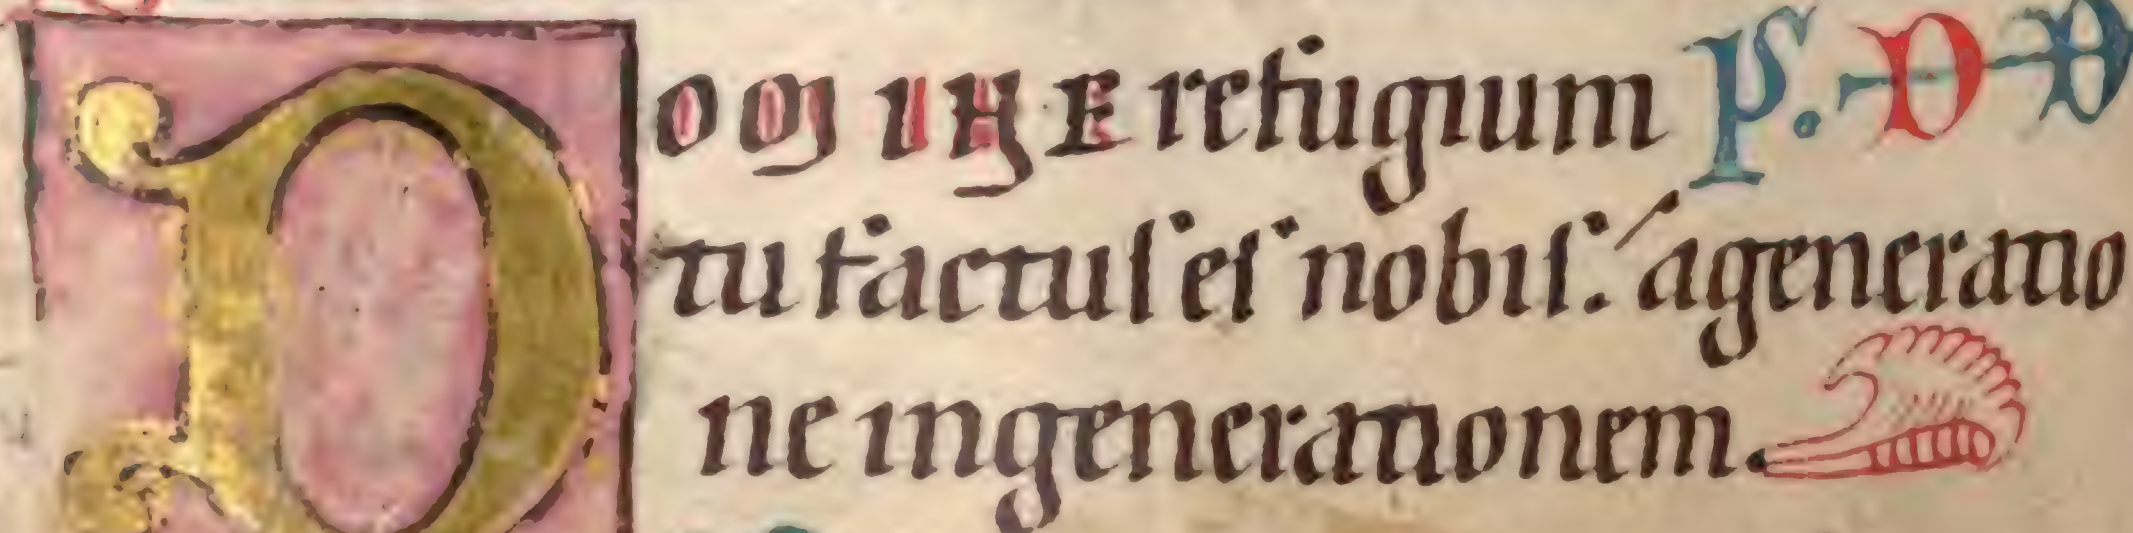 DOMINE refugium P. D D
tu factus es nobis: a generatio
ne in generationem.